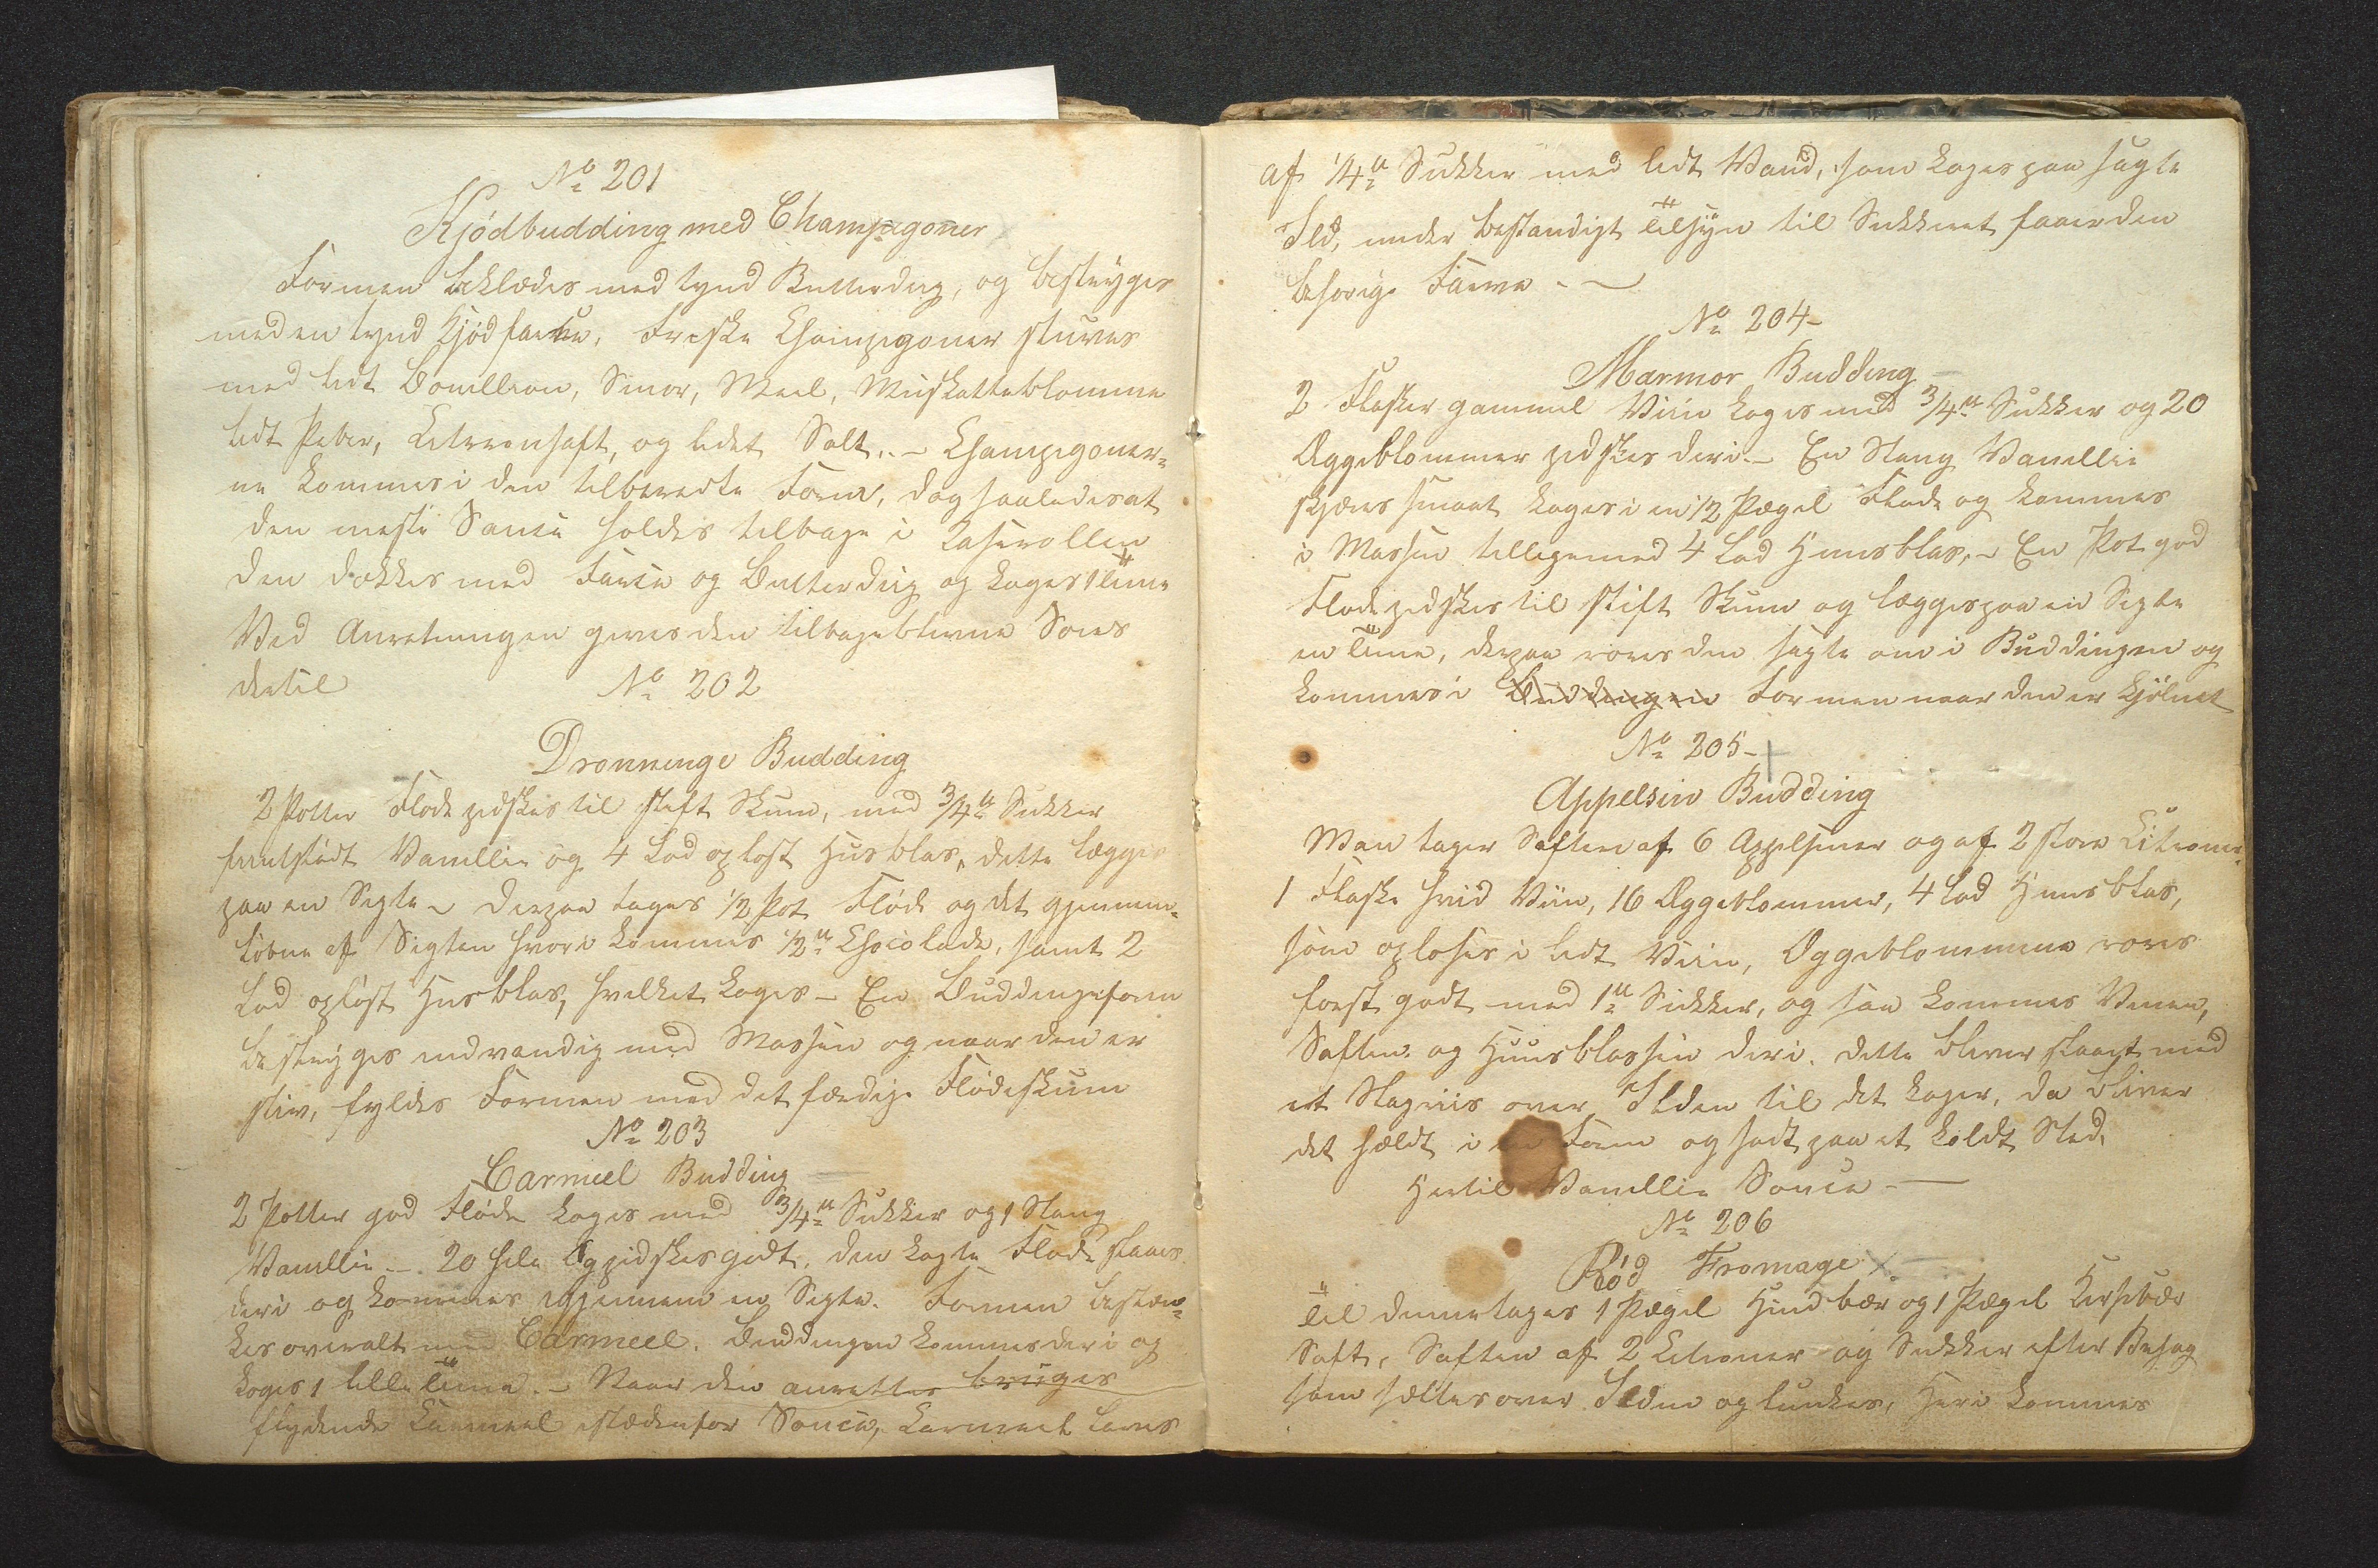 No 201
Kjödbudding med Champigoner
Formen beklædes med tynd Butterdeig, og bestryges
med en tynd Kjödfarce, Friske Champigoner stuves
med lidt Bouillion, Smør, Meel, Muskatteblomme
lidt Peber, Citronsaft, og lidet Salt. – Champigoner-
ne kommes i den tilberedte Form, dog saaledes at
den meste Sauce holdes tilbage i Caserollen
den dækkes med Farce og Butterdeig og koges 1 Time
Ved Anretningen gives den tilbageblevne Sous
dertil
No 202
Dronninge Budding
2 Potter Fløde pidskes til stift Skum, med 3/4 ℔ Sukker
fiintstødt Vanillie og 4 Lod opløst Husblas, dette lægges
paa en Sigte – derpaa tages 1/2 Pot Fløde og det gjennem-
løbne af Sigten hvori kommes 1/2 ℔ Chocolade, samt 2
Lod opløst Husblas, hvilket koges – En Buddingeform
bestryges indvendig med Massen og naar den er
stiv, fyldes Formen med det færdige Flødeskum
No 203
Carmeel Budding
2 Potter god Fløde koges med 3/4 ℔ Sukker og 1 Stang
Vanillie – 20 hele Eg pidskes godt, den kogte Fløde slaaes
deri og kommes igjennem en Sigte. Formen bestæn-
kes overalt med Carmeel. Buddingen kommes deri og
koges 1 lille Time. – Naar den anrettes bruges
flydende Carmeel istedenfor Sauce, Karmeel laves
af 1/4 ℔ Sukker med lidt Vand, som koges paa sagte
Ild, under bestandigt Tilsyn til Sukkeret faaer den
behørige Farve –
No 204
Marmor Budding
2 Flasker gammel Viin koges med 3/4 ℔ Sukker og 20
Æggeblommer pidskes deri. – En Stang Vanillie
skjæres smaat koges i en 1/2 Pægel Fløde og kommes
i Massen tilligemed 4 Lod Huusblas, – En Pot god
Fløde pidskes til stift Skum og lægges paa en Sigte
en Time, derpaa røres den sagte om i Buddingen og
kommes i Buddingen Formen naar den er kjølnet
No 205
Appelsin Budding
Man tager Saften af 6 Appelsiner og af 2 store Citroner
1 Flaske hvid Viin, 16 Æggeblommer, 4 Lod Huusblas,
som opløses i lidt Viin, Æggeblommene røres
først godt med 1 ℔ Sukker, og saa kommes Vinen,
Saften og Huusblassen deri. dette bliver slaaet med
et Slagriis over Ilden til det koger, da bliver
det hældt i en Form og sadt paa et koldt Sted,
Hertil Vanillie Sauce –
No 206
Rød Fromage
Til denne tages 1 Pægel Hindbær og 1 Pægel Kirsebær
Saft, Saften af 2 Citroner og Sukker efter Behag
som sættes over Ilden og lunkes, Heri kommes